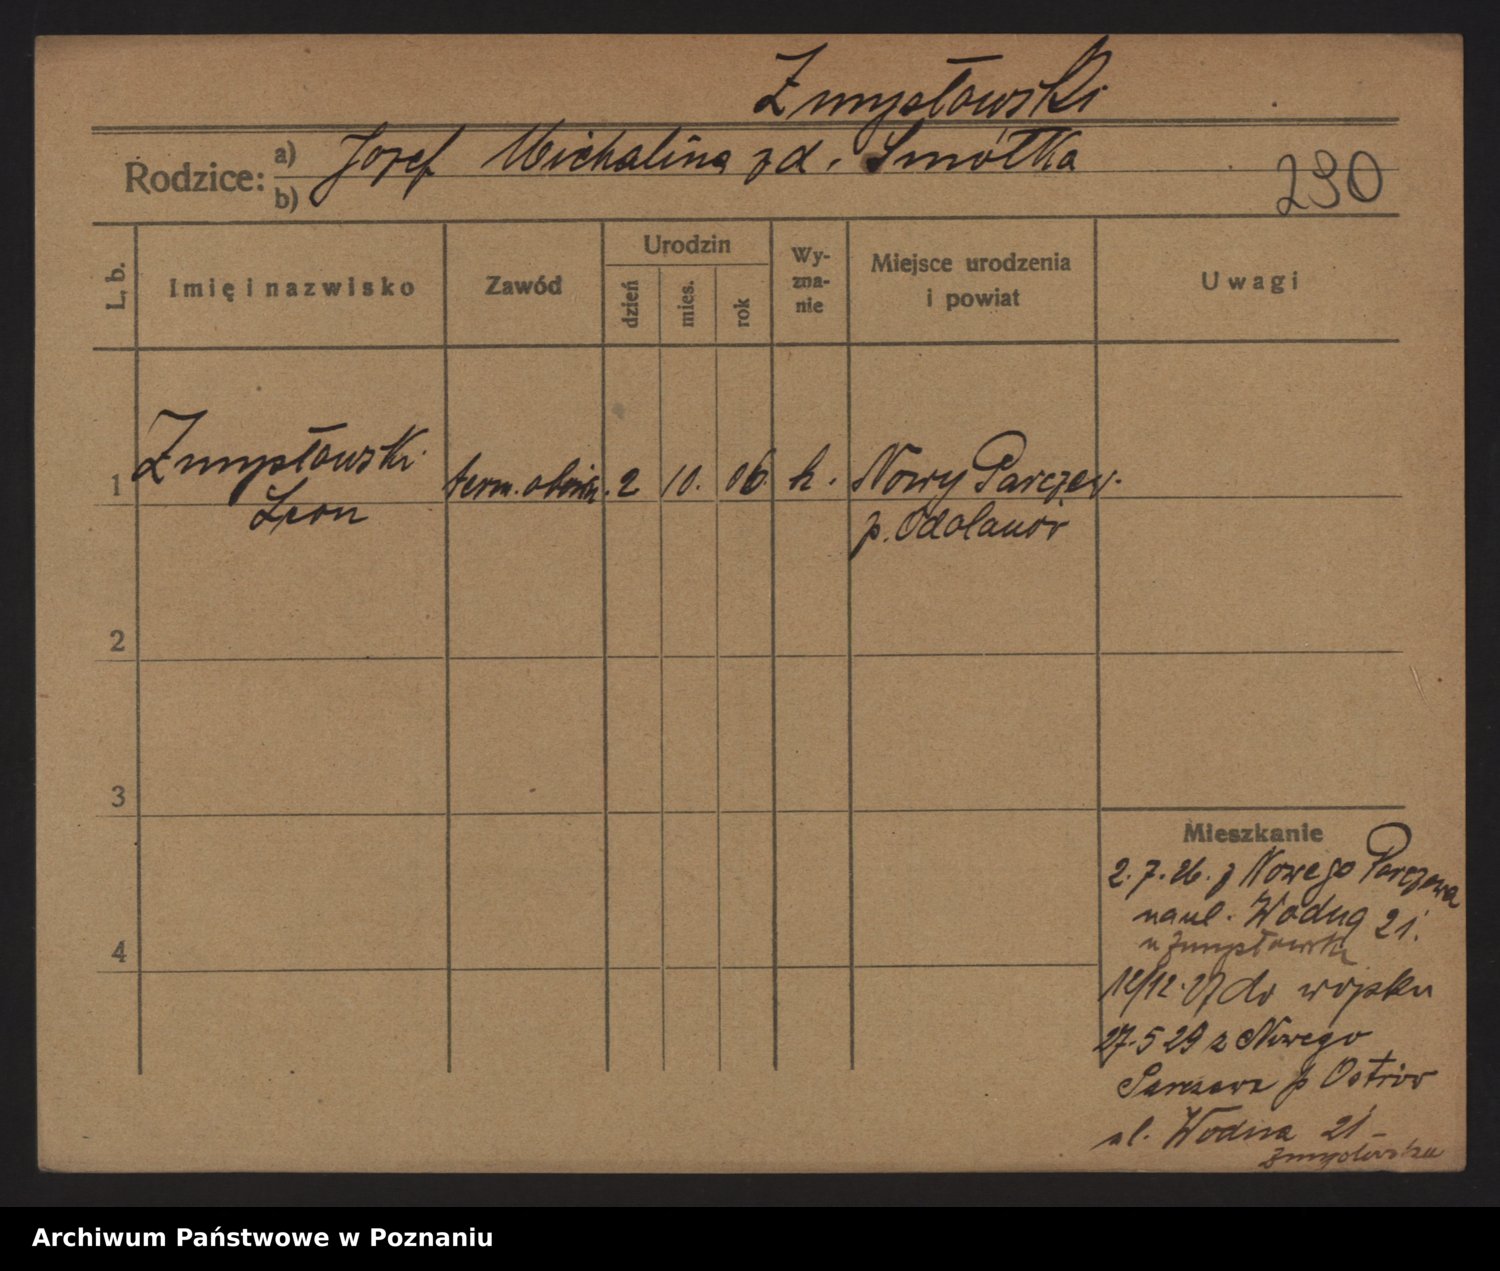 Zmysłowski
Rodzice: a) Józef Michalina zd. Smółka
b)
290
L. b.
Imię i nazwisko
Zawód
Urodzin
dzień
mies.
rok
Wy-
zna-
nie
Miejsce urodzenia
i powiat
Uwagi
1 Zmysłowski term. 2 10. 06. k. Nowy Parczew.
Leon p. Odolanów
2
3
4
Mieszkanie
2.7.26. z Nowego Parczewa
na ul. Wodną 21.
u Zmysłowski
12/12.27 do wojska
27.5 29 z Nowego
Parczewa p Ostrów
ul. Wodna 21
Zmysłowska
Archiwum Państwowe w Poznaniu